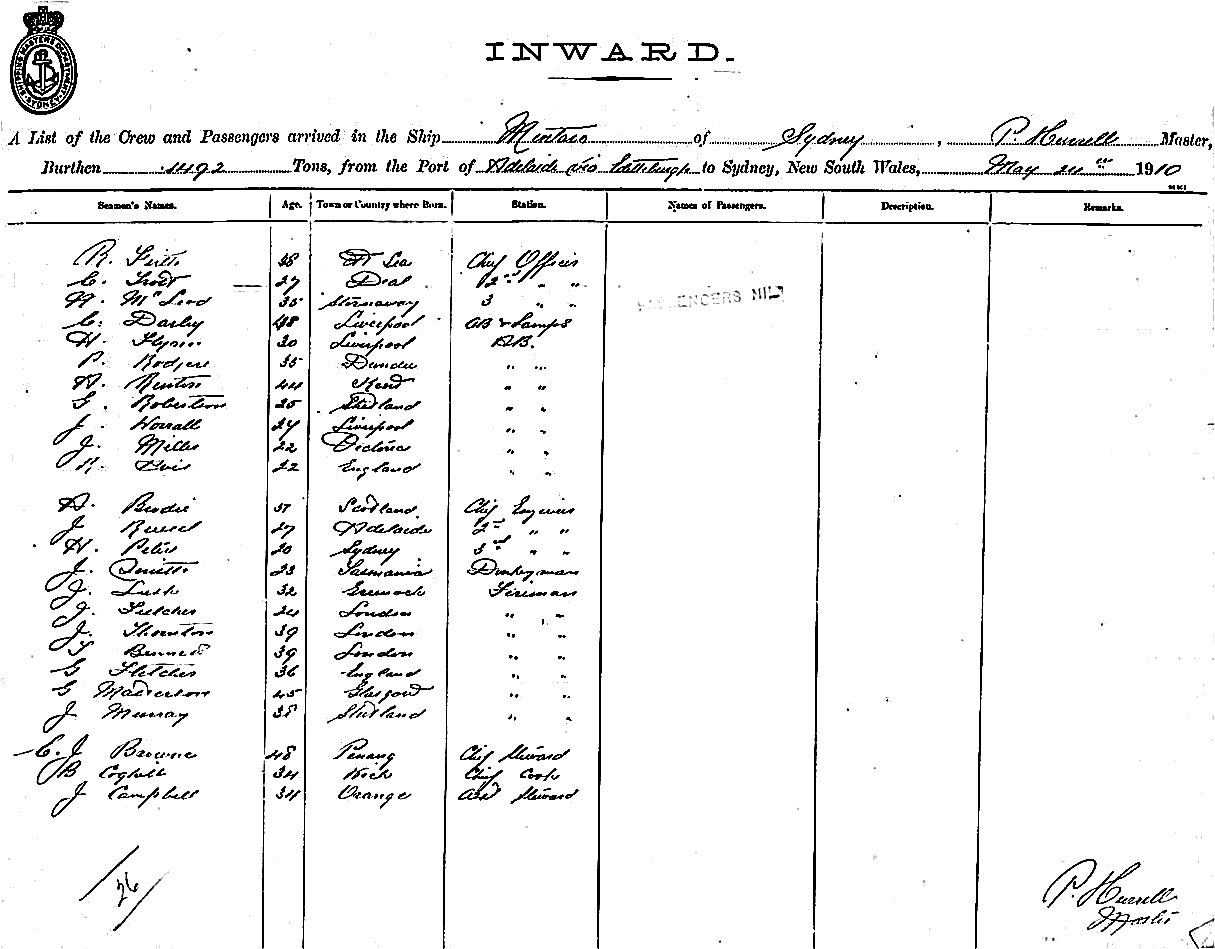 SHIPPING MASTERS DEPARTMENT SYDNEY
INWARD.
A List of the Crew and Passengers arrived in the Ship Mintaro of Sydney, P. Hurrell Master,
Burthen Tons, from the Port of Adelaide via to Sydney, New South Wales, May 24 1910
Seamen's Names. Age. Town or Country where Born. Station. Names of Passengers. Description. Remarks.
R. 38 At Sea Chief Officer
C. 27 Deal 2nd " "
McLeod 35 Stornaway 3 " "
C. Darby 48 Liverpool AB & Lamps
H. Flynn 30 Liverpool A.B.
PASSENGERS NIL
P. Rodgers 35 Dundee " "
A. Renton 44 Kent " "
Robertson 25 Shetland " "
J. Worrall 24 Liverpool " "
J. Miller 22 Victoria " "
22 England " "
A. Brodie 57 Scotland Chief Engineer
J. Russel 27 Adelaide 2nd " "
H. Peters 20 Sydney 3rd " "
J. 23 Tasmania Donkeyman
J. Lusk 32 Greenock Fireman
J. Fletcher 24 London " "
J. Thornton 39 London " "
Bennett 39 London " "
G Fletcher 36 England " "
G Masterson 45 Glasgow " "
J Murray 38 Shetland " "
C. J Browne 48 Penang Chief Steward
B Coghill 34 Wick Chief Cook
J Campbell 34 Orange Asst Steward
26
P. Hurrell
Master